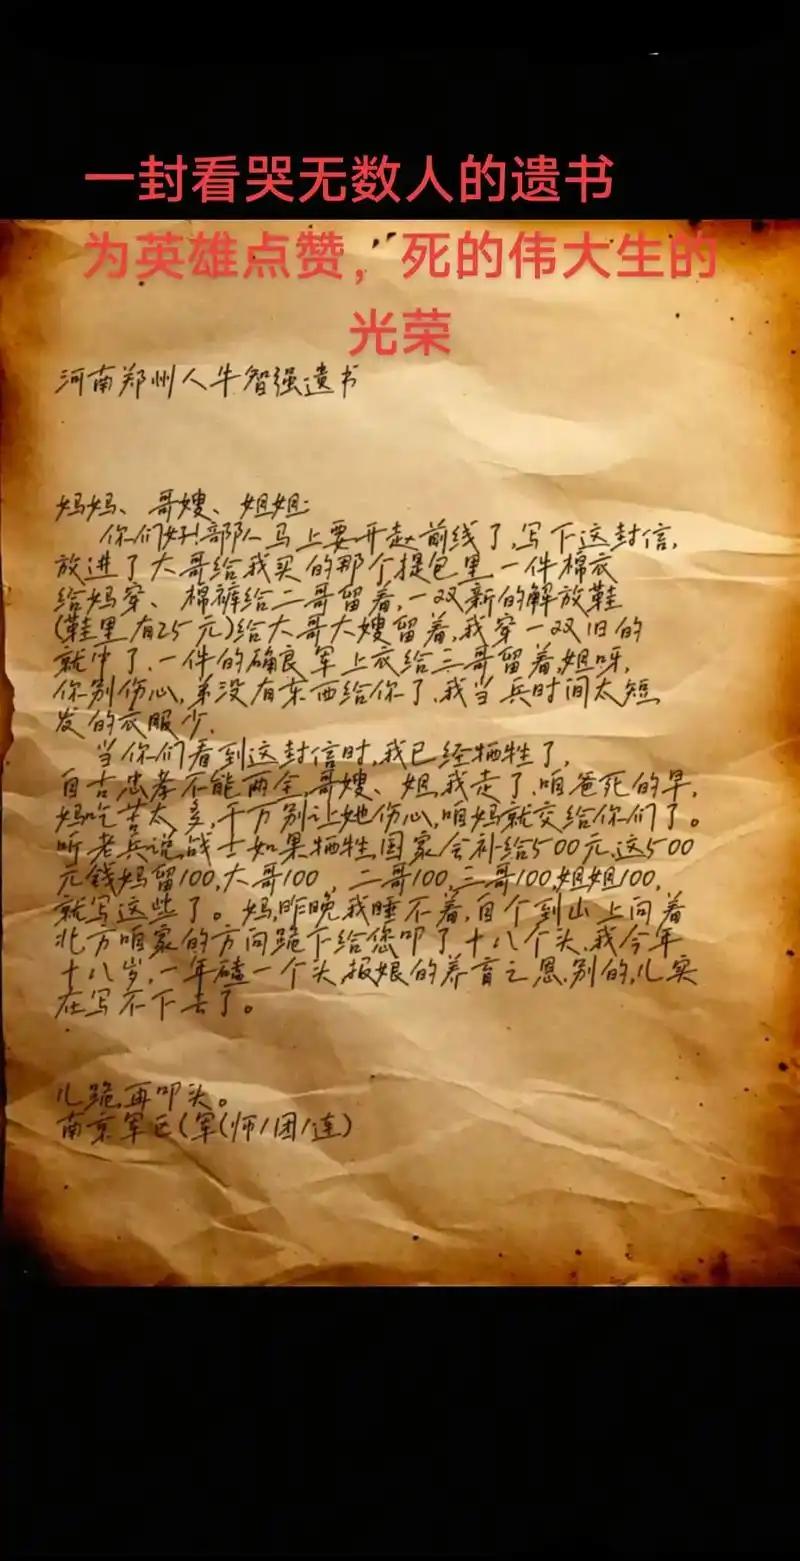 一封看哭无数人的遗书
为英雄点赞，死的伟大生的
光荣
河南郑州人牛智强遗书
妈妈、哥嫂、姐姐:
你们好!部队马上要开赴前线了,写下这封信,
放进了大哥给我买的那个提包里一件棉衣
给妈穿、棉裤给二哥留着,一双新的解放鞋
(鞋里有25元)给大哥大嫂留着,我穿一双旧的
就中了.一件的确良军上衣给三哥留着,姐呀,
你别伤心,弟没有东西给你了.我当兵时间太短
发的衣服少.
当你们看到这封信时,我已经牺牲了,
自古忠孝不能两全,哥嫂、姐,我走了.咱爸死的早,
妈吃苦太多,千万别让她伤心,咱妈就交给你们了。
听老兵说,战士如果牺牲,国家会补给500元,这500
元錢妈留100,大哥100,二哥100,三哥100,姐姐100,
就写这些了。妈,昨晚我睡不着,自个到山上向着
北方咱家的方向跪下给您叩了十八个头.我今年
十八岁,一年磕一个头,报娘的养育之恩.别的,儿实
在写不下去了。
儿跪,再叩头。
南京军区(军(师/团/连)